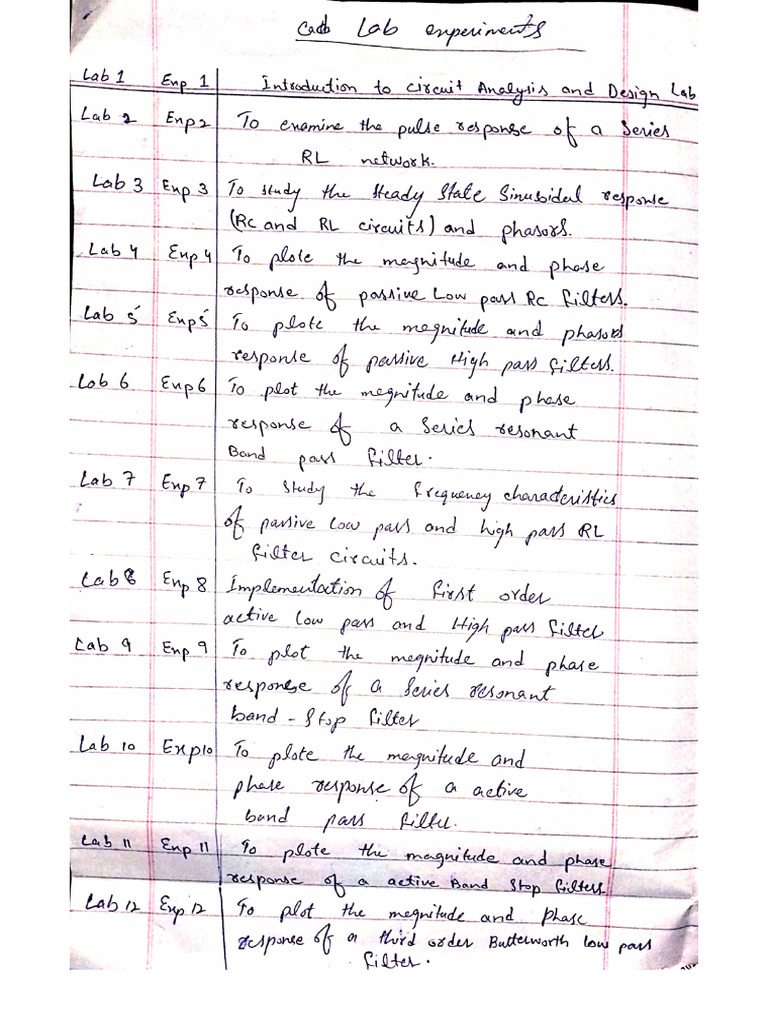 Cadb Lab experiments
Lab 1 Exp 1 Introduction to circuit Analysis and Design Lab
Lab 2 Exp 2 To examine the pulse response of a series
RL network.
Lab 3 Exp 3 To study the steady State Sinusoidal response
(RC and RL circuits) and phasors.
Lab 4 Exp 4 To plote the magnitude and phase
response of passive Low pass RC filters.
Lab 5 Exp 5 To plote the magnitude and phasors
response of passive High pass filters.
Lab 6 Exp 6 To plot the megnitude and phase
response of a series resonant
Band pass filter.
Lab 7 Exp 7 To study the frequency characteristics
of passive low pass and high pass RL
filter circuits.
Lab 8 Exp 8 Implementation of first order
active low pass and High pass filter
Lab 9 Exp 9 To plot the megnitude and phase
response of a series resonant
band-stop filter
Lab 10 Exp 10 To plote the magnitude and
phase response of a active
band pass filter.
Lab 11 Exp 11 To plote the magnitude and phase
response of a active Band Stop filters
Lab 12 Exp 12 To plot the megnitude and phase
response of a third order Butterworth low pass
filter.